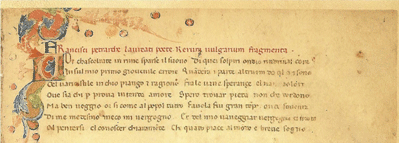 Francisci petrarche laureati poete Rerum vulgarium fragmenta
Voi chascoltate in rime sparse il suono Di quei sospiri ondio nudriual core
In sul mio primo giouenile errore Quandera in parte altruom da quel chi sono
Del vario stile in chio piango et ragiono Fra le uane speranze el uan dolore
Oue sia chi per proua intenda amore Spero trouar pieta non che perdono
Ma ben veggio or si come al popol tutto Fauola fui gran tempo onde souente
Di me medesmo meco mi vergogno Et del mio vaneggiar vergogna el frutto
El pentersi el conoscer chiaramente Che quanto piace al mondo e breue sogno